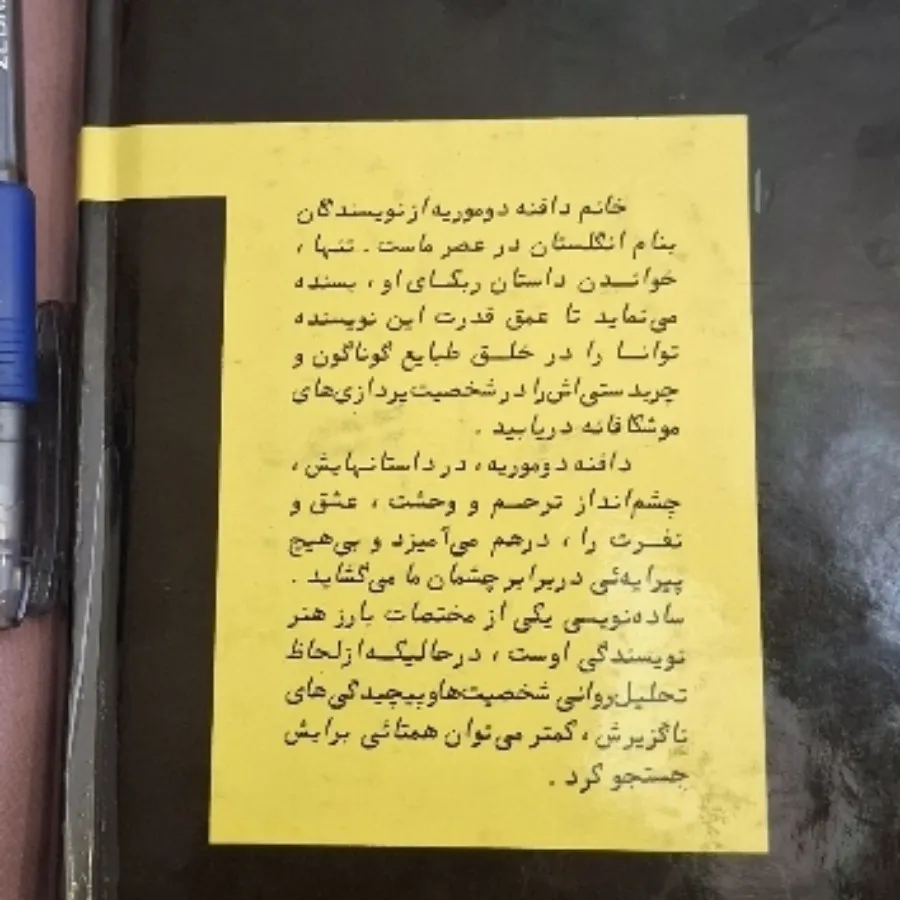 خانم دافنه دوموریه از نویسندگان
بنام انگلستان در عصر ماست . تنها ،
خوانـدن داستان ربکـای او ، بسنده
می‌نماید تا عمق قدرت این نویسنده
توانـا را در خلـق طبایع گوناگون و
چربدستی‌اش را در شخصیت‌پردازی‌های
موشکافانه دریابید .
دافنه دوموریه ، در داستانهایش ،
چشم‌انداز ترحـم و وحشت ، عشق و
نفـرت را ، درهم می‌آمیزد و بی‌هیچ
پیرایه‌ئی در برابر چشمان ما می‌گشاید .
ساده‌نویسی یکی از مختصات بارز هنر
نویسندگی اوست ، در حالیکـه از لحاظ
تحلیل روانی شخصیت‌ها و پیچیدگی‌های
ناگزیرش ، کمتر می‌توان همتائی برایش
جستجو کرد .